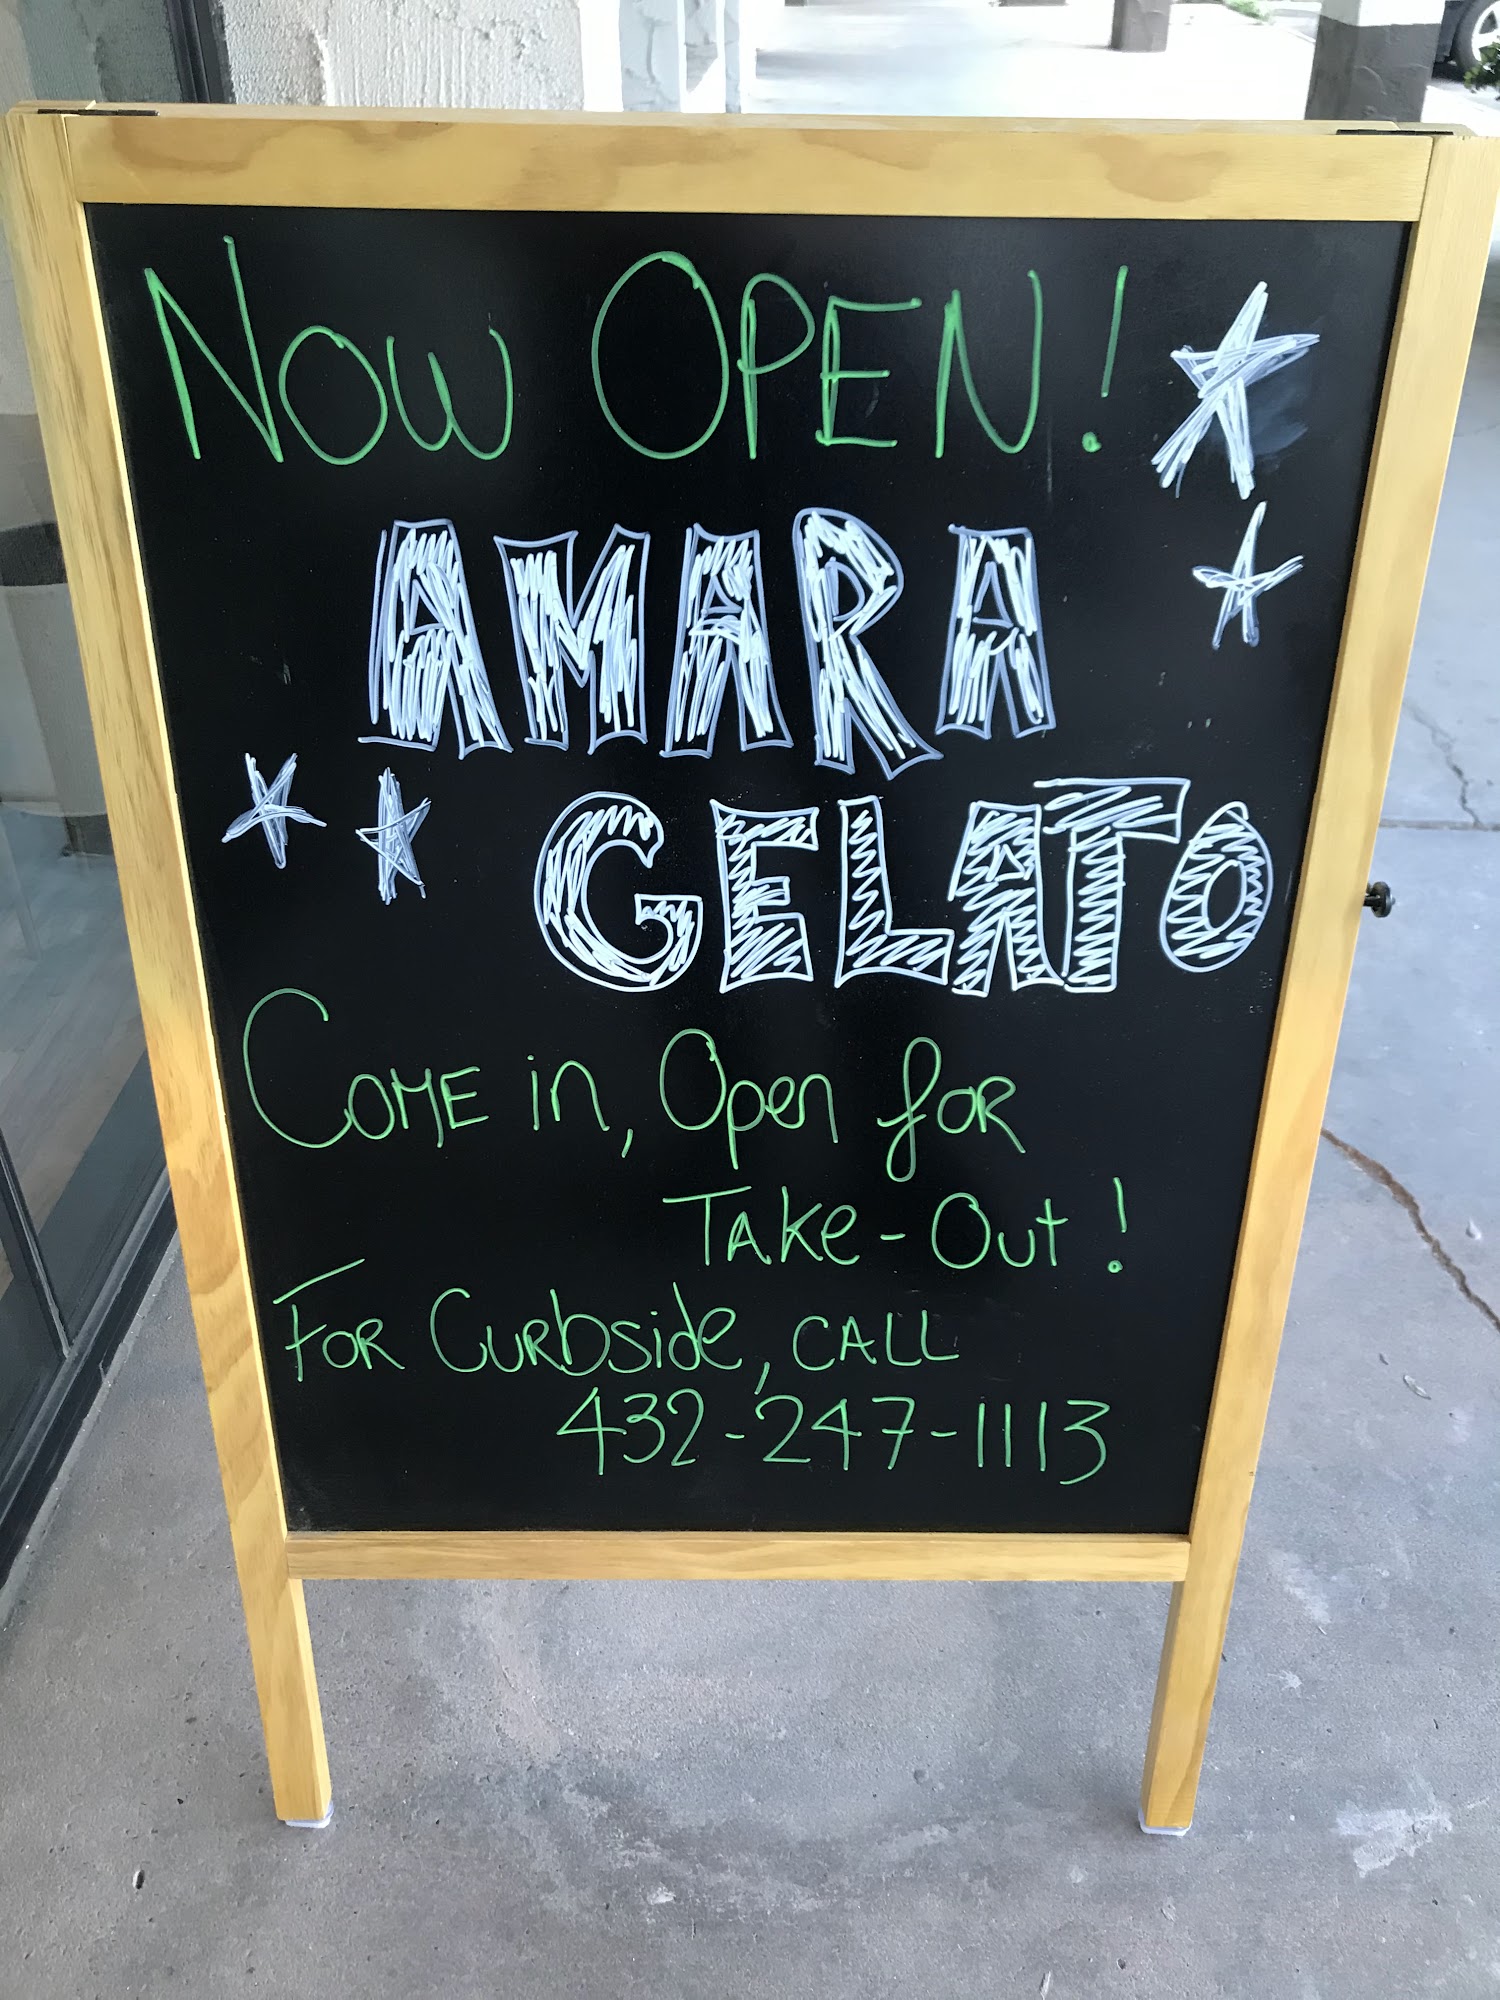 Now OPEN!
AMARA
GELATO
COME in, Open for
TAKe-Out!
FOR Curbside, CALL
432-247-1113